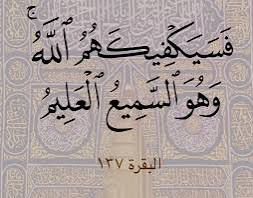 فَسَيَكْفِيكَهُمُ ٱللَّهُ ۚ
وَهُوَ ٱلسَّمِيعُ ٱلْعَلِيمُ
البقرة ١٣٧